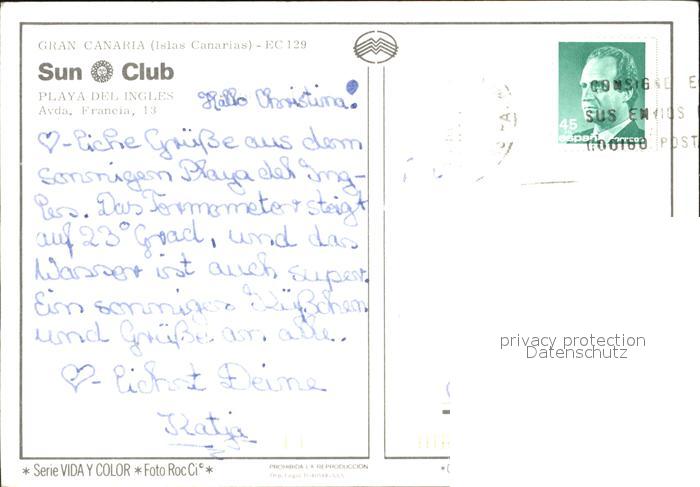 GRAN CANARIA (Islas Canarias) - EC 129
Sun Club
PLAYA DEL INGLES
Avda, Francia, 13
Hallo Christina!
♡-liche Grüße aus dem
sonnigen Playa del Ing-
les. Das Termometer steigt
auf 23° Grad, und das
Wasser ist auch super.
Ein sonniges Küßchen
und Grüße an alle.
♡-lichst Deine
Katja
45
españa
CONSIGNE E
SUS ENVIOS
CODIGO POST
privacy protection
Datenschutz
* Serie VIDA Y COLOR * Foto Roc Cíº *
PROHIBIDA LA REPRODUCCION